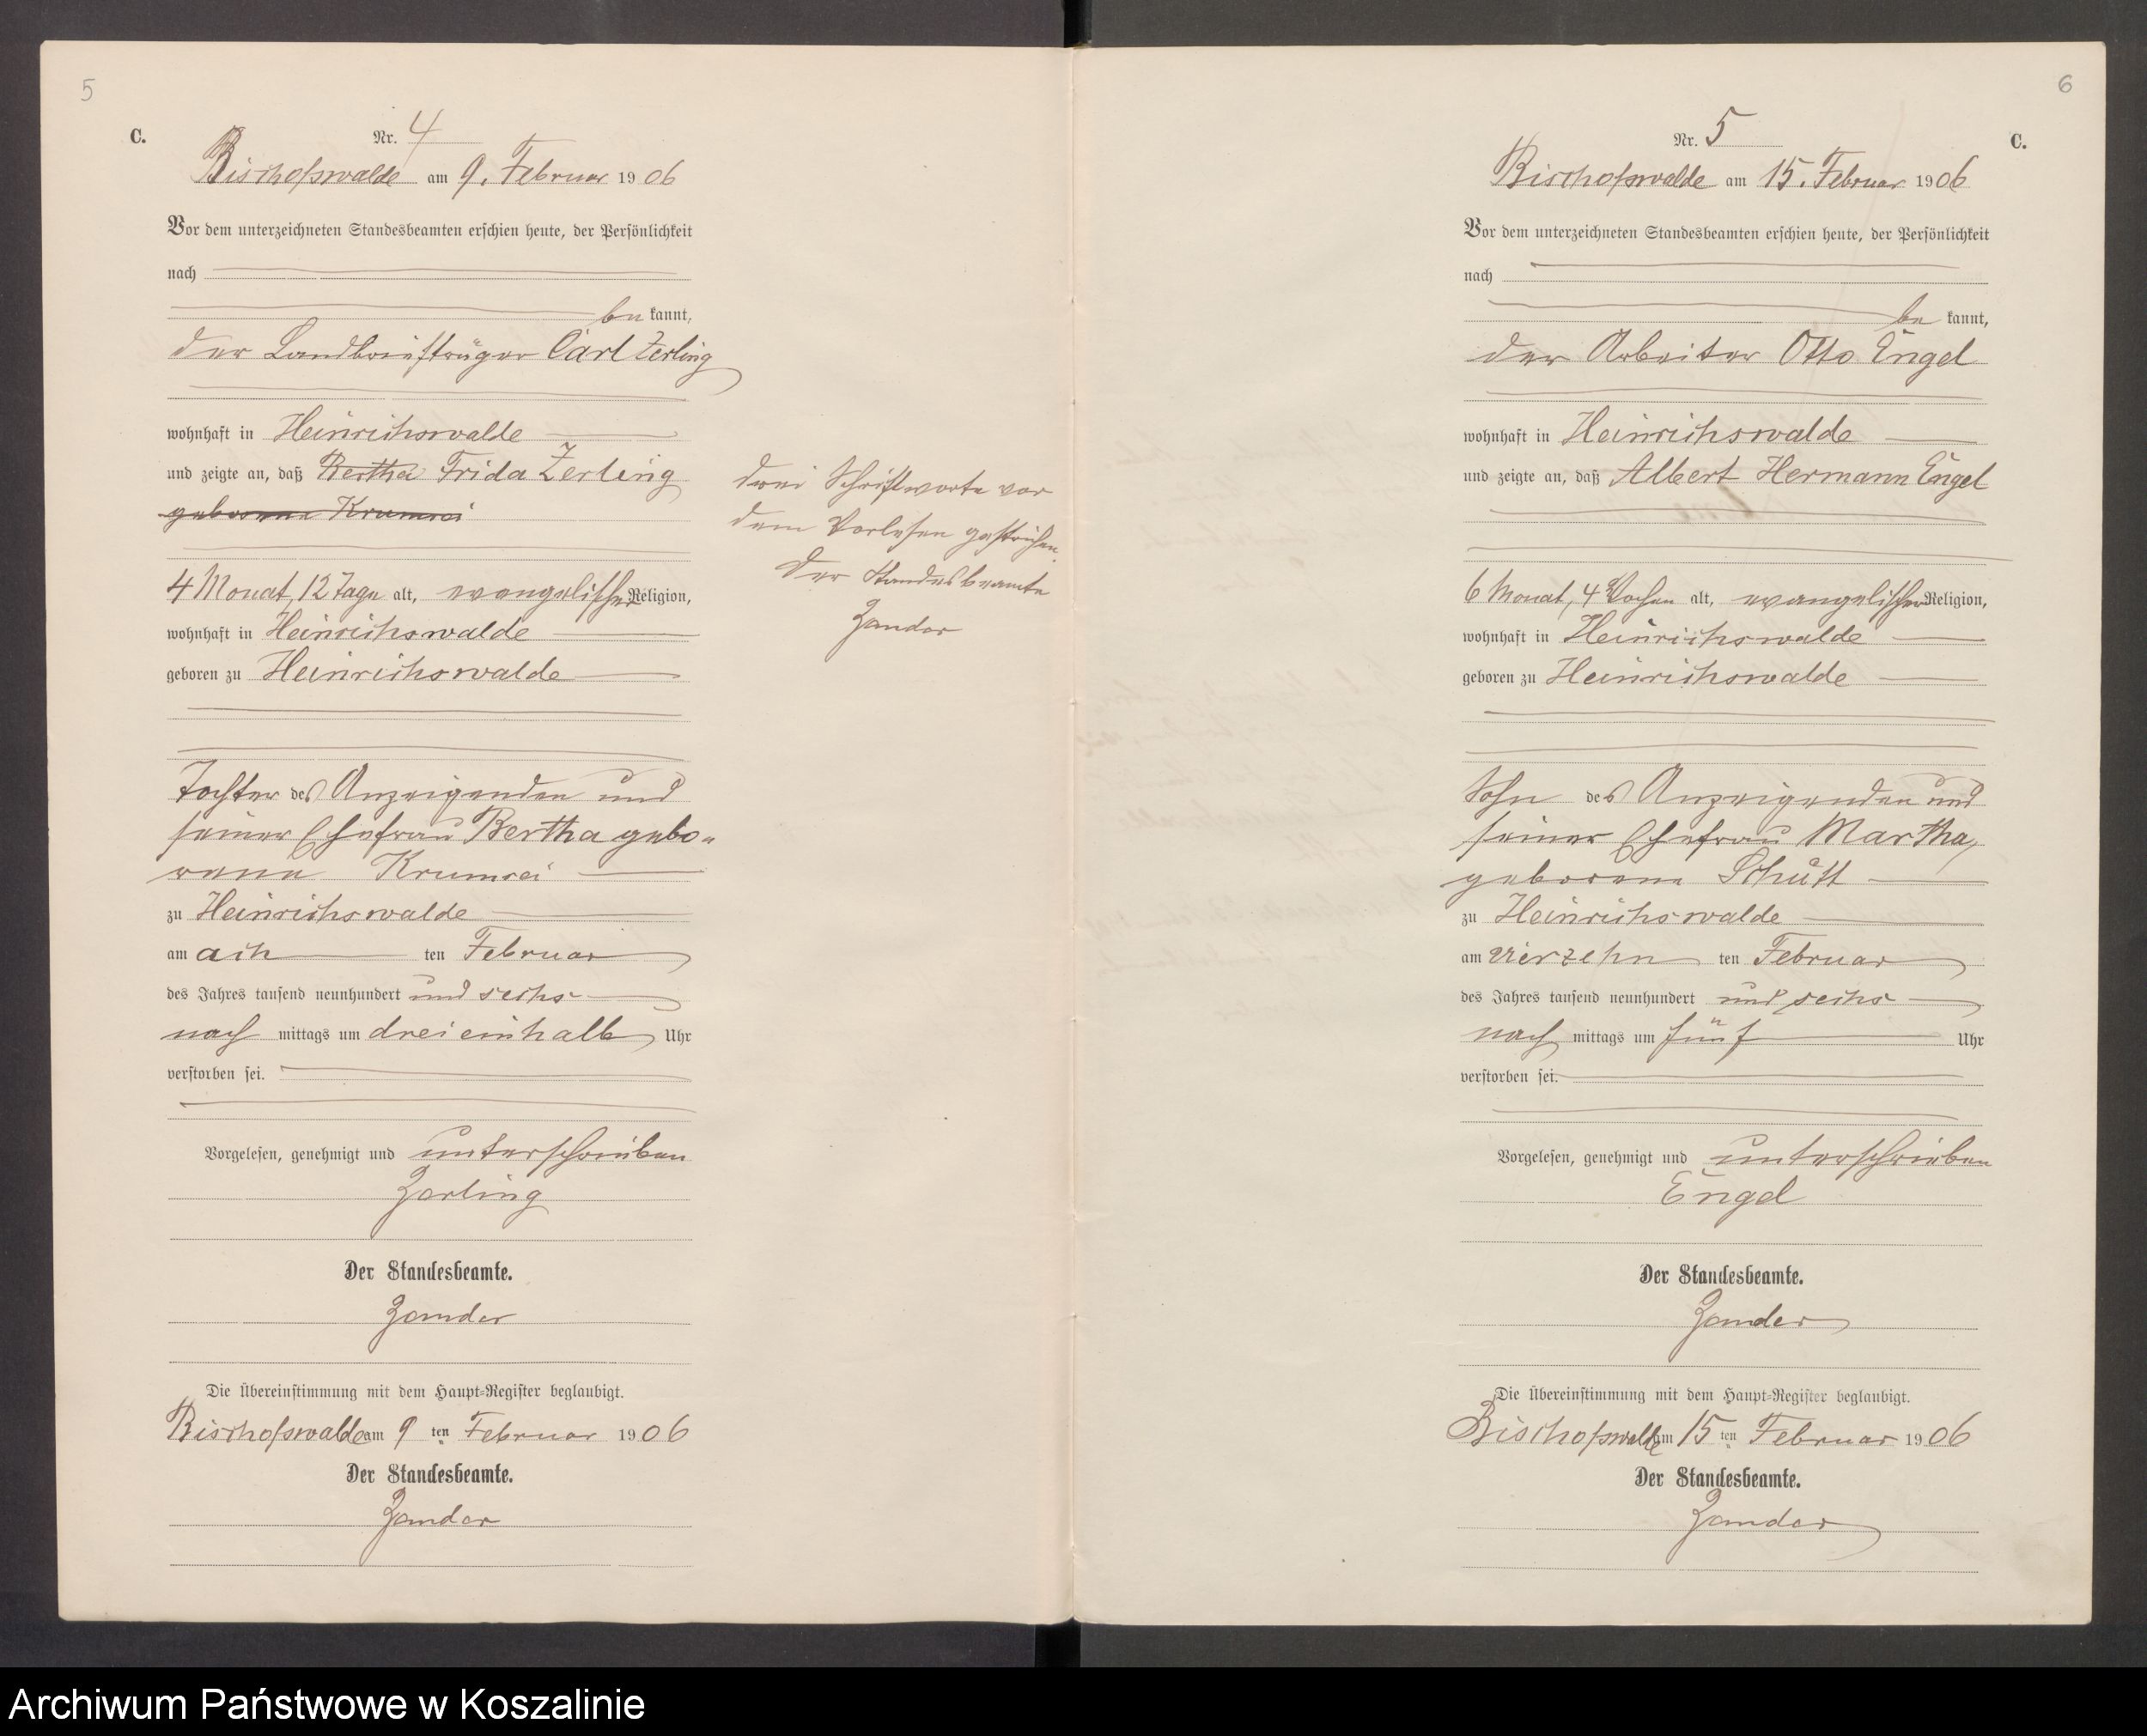 5
C.
Nr. 4
Bischofswalde am 9. Februar 1906
Vor dem unterzeichneten Standesbeamten erschien heute, der Persönlichkeit
nach
be kannt,
der Landbriefträger Carl Zerling
wohnhaft in Heinrichswalde
und zeigte an, daß Bertha Frida Zerling
geborene Krumrei
4 Monat, 12 Tage alt, evangelischer Religion,
wohnhaft in Heinrichswalde
geboren zu Heinrichswalde
Tochter des Anzeigenden und
seiner Ehefrau Bertha gebo-
rene Krumrei
zu Heinrichswalde
am ach ten Februar
des Jahres tausend neunhundert und sechs
nach mittags um drei einhalb Uhr
verstorben sei.
Vorgelesen, genehmigt und unterschrieben
Zerling
Der Standesbeamte.
Zander
Die Übereinstimmung mit dem Haupt-Register beglaubigt.
Bischofswalde am 9 ten Februar 1906
Der Standesbeamte.
Zander
drei Schriftworte vor
dem Vorlesen gestrichen.
Der Standesbeamte
Zander
6
C.
Nr. 5
Bischofswalde am 15. Februar 1906
Vor dem unterzeichneten Standesbeamten erschien heute, der Persönlichkeit
nach
be kannt,
der Arbeiter Otto Engel
wohnhaft in Heinrichswalde
und zeigte an, daß Albert Hermann Engel
6 Monat, 4 Wochen alt, evangelischer Religion,
wohnhaft in Heinrichswalde
geboren zu Heinrichswalde
Sohn des Anzeigenden und
seiner Ehefrau Martha,
geborene Schütt
zu Heinrichswalde
am vierzehn ten Februar
des Jahres tausend neunhundert und sechs
nach mittags um fünf Uhr
verstorben sei.
Vorgelesen, genehmigt und unterschrieben
Engel
Der Standesbeamte.
Zander
Die Übereinstimmung mit dem Haupt-Register beglaubigt.
Bischofswalde am 15 ten Februar 1906
Der Standesbeamte.
Zander
Archiwum Państwowe w Koszalinie